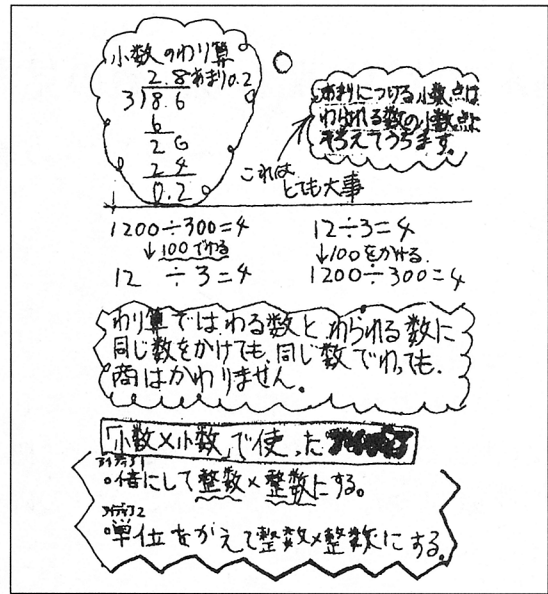 小数のわり算
2.8あまり0.2
3)8.6
6
26
24
0.2
あまりにつける小数点は
わられる数の小数点に
そろえてうちます。
これは
とても大事
1200÷300=4
↓100でわる
12 ÷3=4
12÷3=4
↓100をかける
1200÷300=4
わり算では、わる数と、わられる数に
同じ数をかけても、同じ数でわっても、
商はかわりません。
「小数×小数」で使った
アイディア1
○倍にして整数×整数にする。
アイディア2
単位をかえて整数×整数にする。